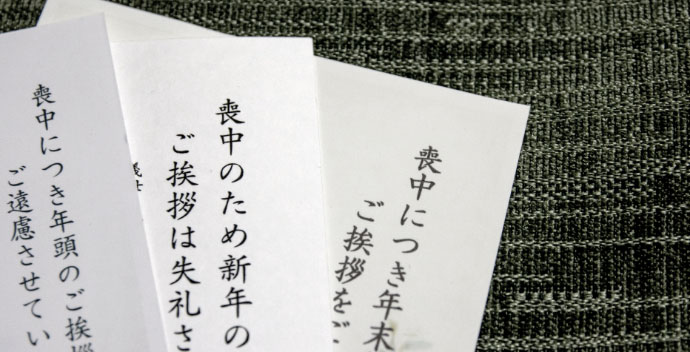 喪中につき年頭のご挨拶
ご遠慮させてい
喪中のため新年の
ご挨拶は失礼さ
喪中につき年末
ご挨拶をご